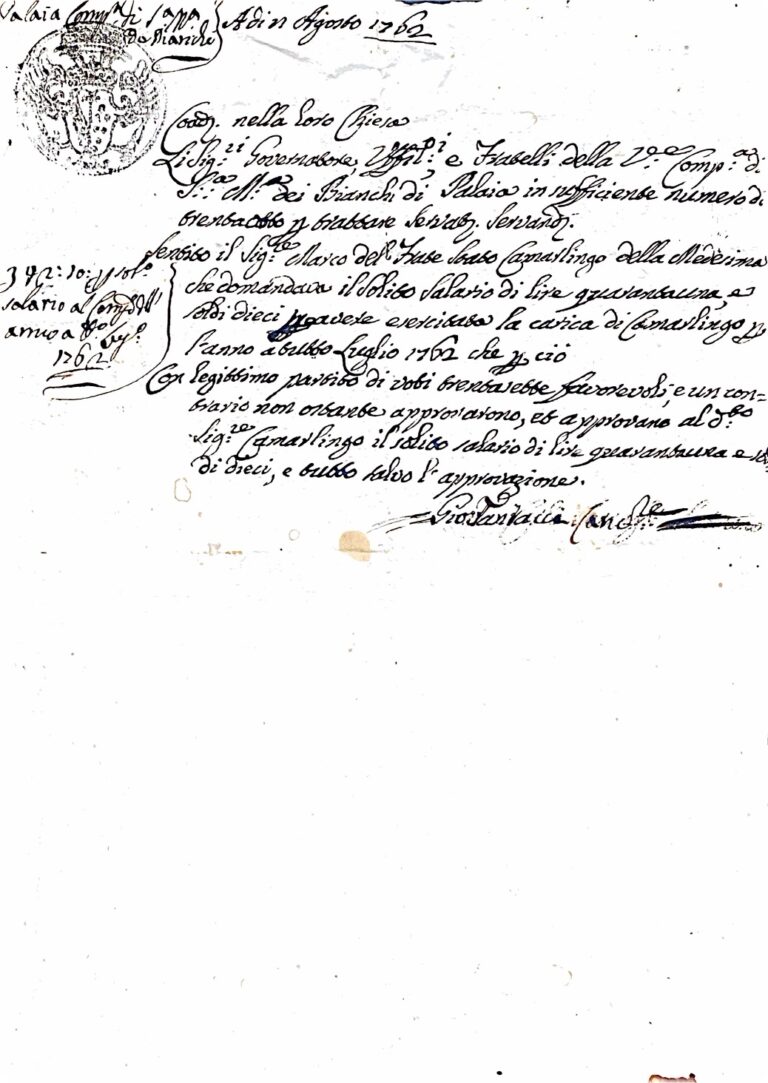 Palaia Comp.a di S.a M.a
de Bianchi
A di 11 Agosto 1762
Coad. nella loro Chiesa
Li Sig.ri Governatore, Uffiz.li e Fratelli della V.e Comp.a di
S.a M.a dei Bianchi di Palaia in sufficiente numero di
trentaotto p trattare Servat. Servand.
Sentito il Sig.re Marco del Frate stato Camarlingo della Medesima
che domandava il solito Salario di lire quarantauna, e
soldi dieci p avere esercitata la carica di Camarlingo p
l'anno a tutto Luglio 1762 che p ciò
Con legittimo partito di voti trentasette favorevoli, e un con-
trario non ostante approvarono, et approvano al d.to
Sig.re Camarlingo il solito salario di lire quarantauna e sol-
di dieci, e tutto salvo l'approvazione.
salario al
annuo a
1762